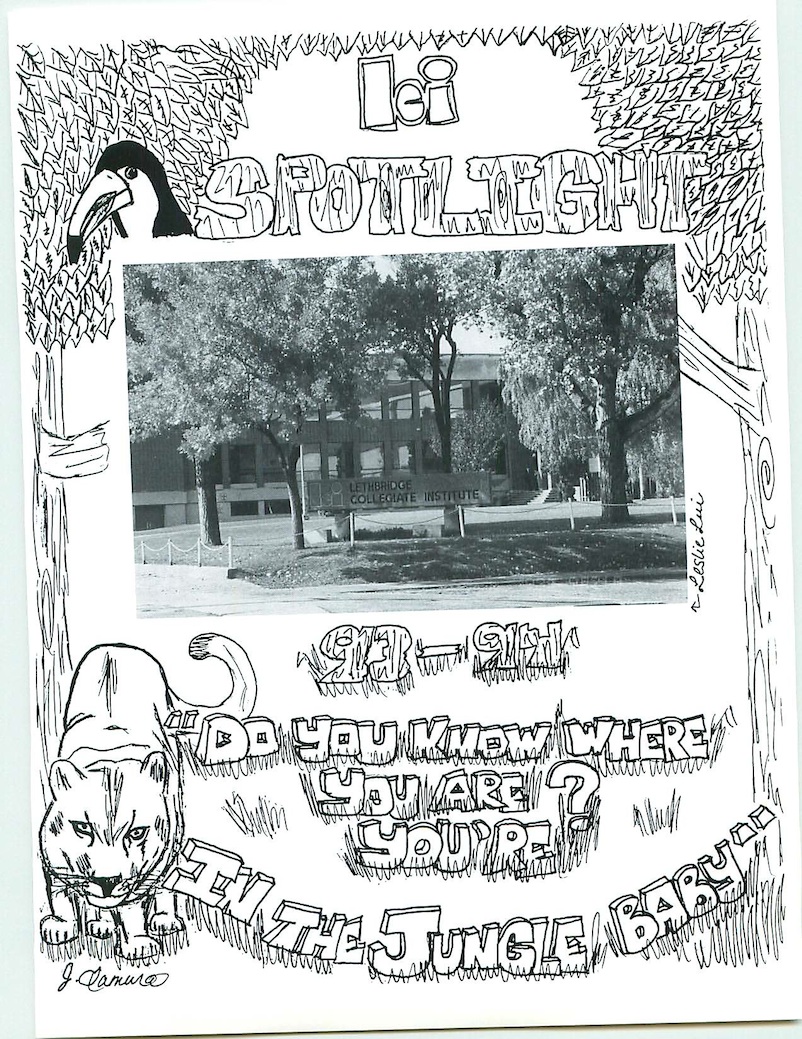 lci
SPOTLIGHT
LETHBRIDGE
COLLEGIATE INSTITUTE
~ Leslie Lui
93-94
"DO YOU KNOW WHERE
YOU ARE?
YOU'RE
IN THE JUNGLE BABY"
J. Tamura